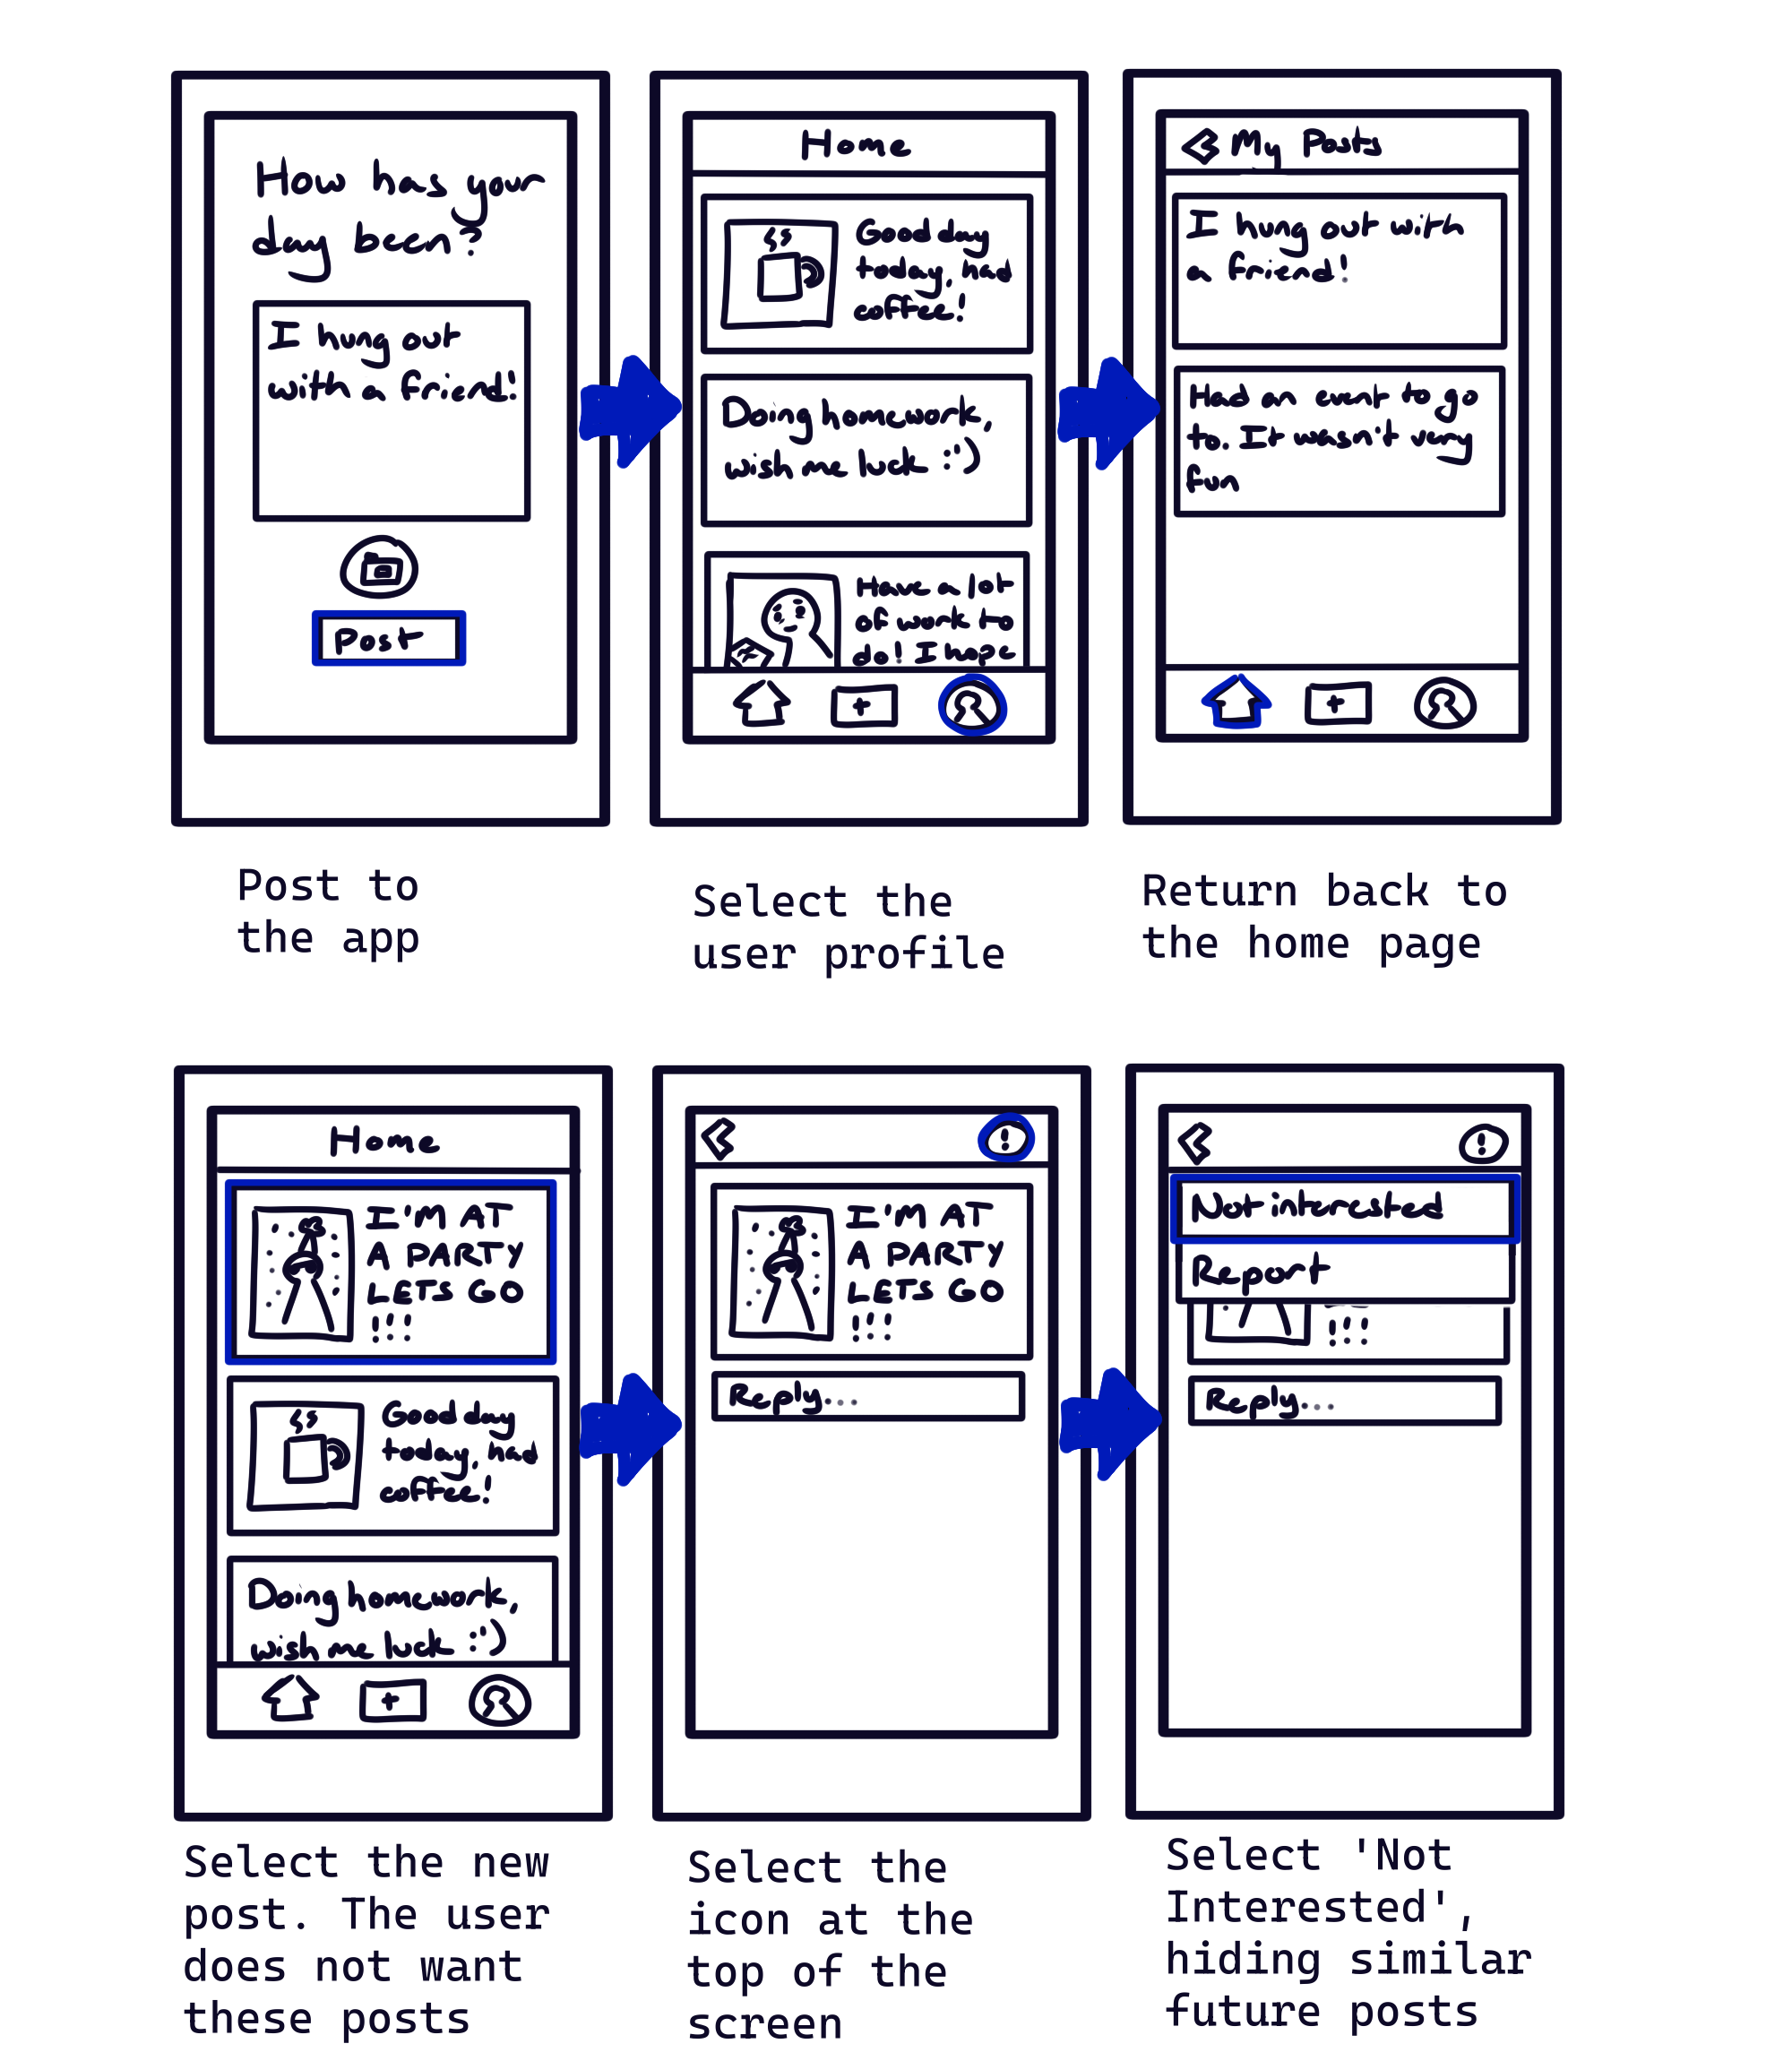 How has your
day been?
I hung out
with a friend!
Post
Post to
the app
Home
Good day
today, had
coffee!
Doing homework,
wish me luck :')
Have a lot
of work to
do! I hope
Select the
user profile
My Posts
I hung out with
a friend!
Had an event to go
to. It wasn't very
fun
Return back to
the home page
Home
I'M AT
A PARTY
LETS GO
!!!
Good day
today, had
coffee!
Doing homework,
wish me luck :')
Select the new
post. The user
does not want
these posts
!
I'M AT
A PARTY
LETS GO
!!!
Reply...
Select the
icon at the
top of the
screen
!
Not interested
Report
!!!
Reply...
Select 'Not
Interested',
hiding similar
future posts